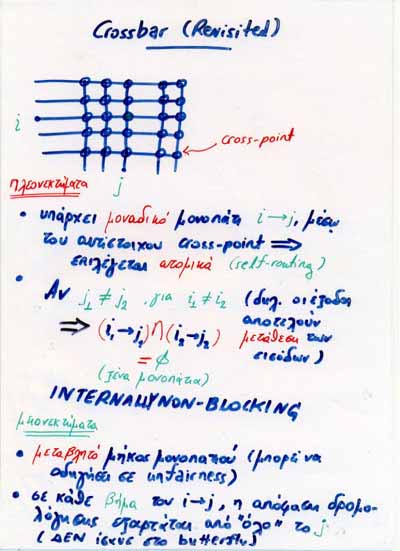 Crossbar (Revisited)
i
cross-point
j
πλεονεκτήματα
• υπάρχει μοναδικό μονοπάτι i→j, μέσω
του αντίστοιχου cross-point ⇒
επιλέγεται ατομικά (self-routing)
• Αν j₁ ≠ j₂, για i₁ ≠ i₂ (δηλ. οι έξοδοι
αποτελούν
⇒ (i₁→j₁) ∩ (i₂→j₂) μετάθεση των
= ∅ εισόδων)
(ξένα μονοπάτια)
INTERNALLY NON-BLOCKING
μειονεκτήματα
• μεταβλητό μήκος μονοπατιού (μπορεί να
οδηγήσει σε unfairness)
• σε κάθε βήμα του i→j, η απόφαση δρομο-
λόγησης εξαρτάται από "όλο" το j
(ΔΕΝ ισχύει στο butterfly)